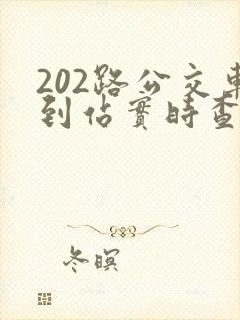 202路公交車
到佔實時查
冬暝